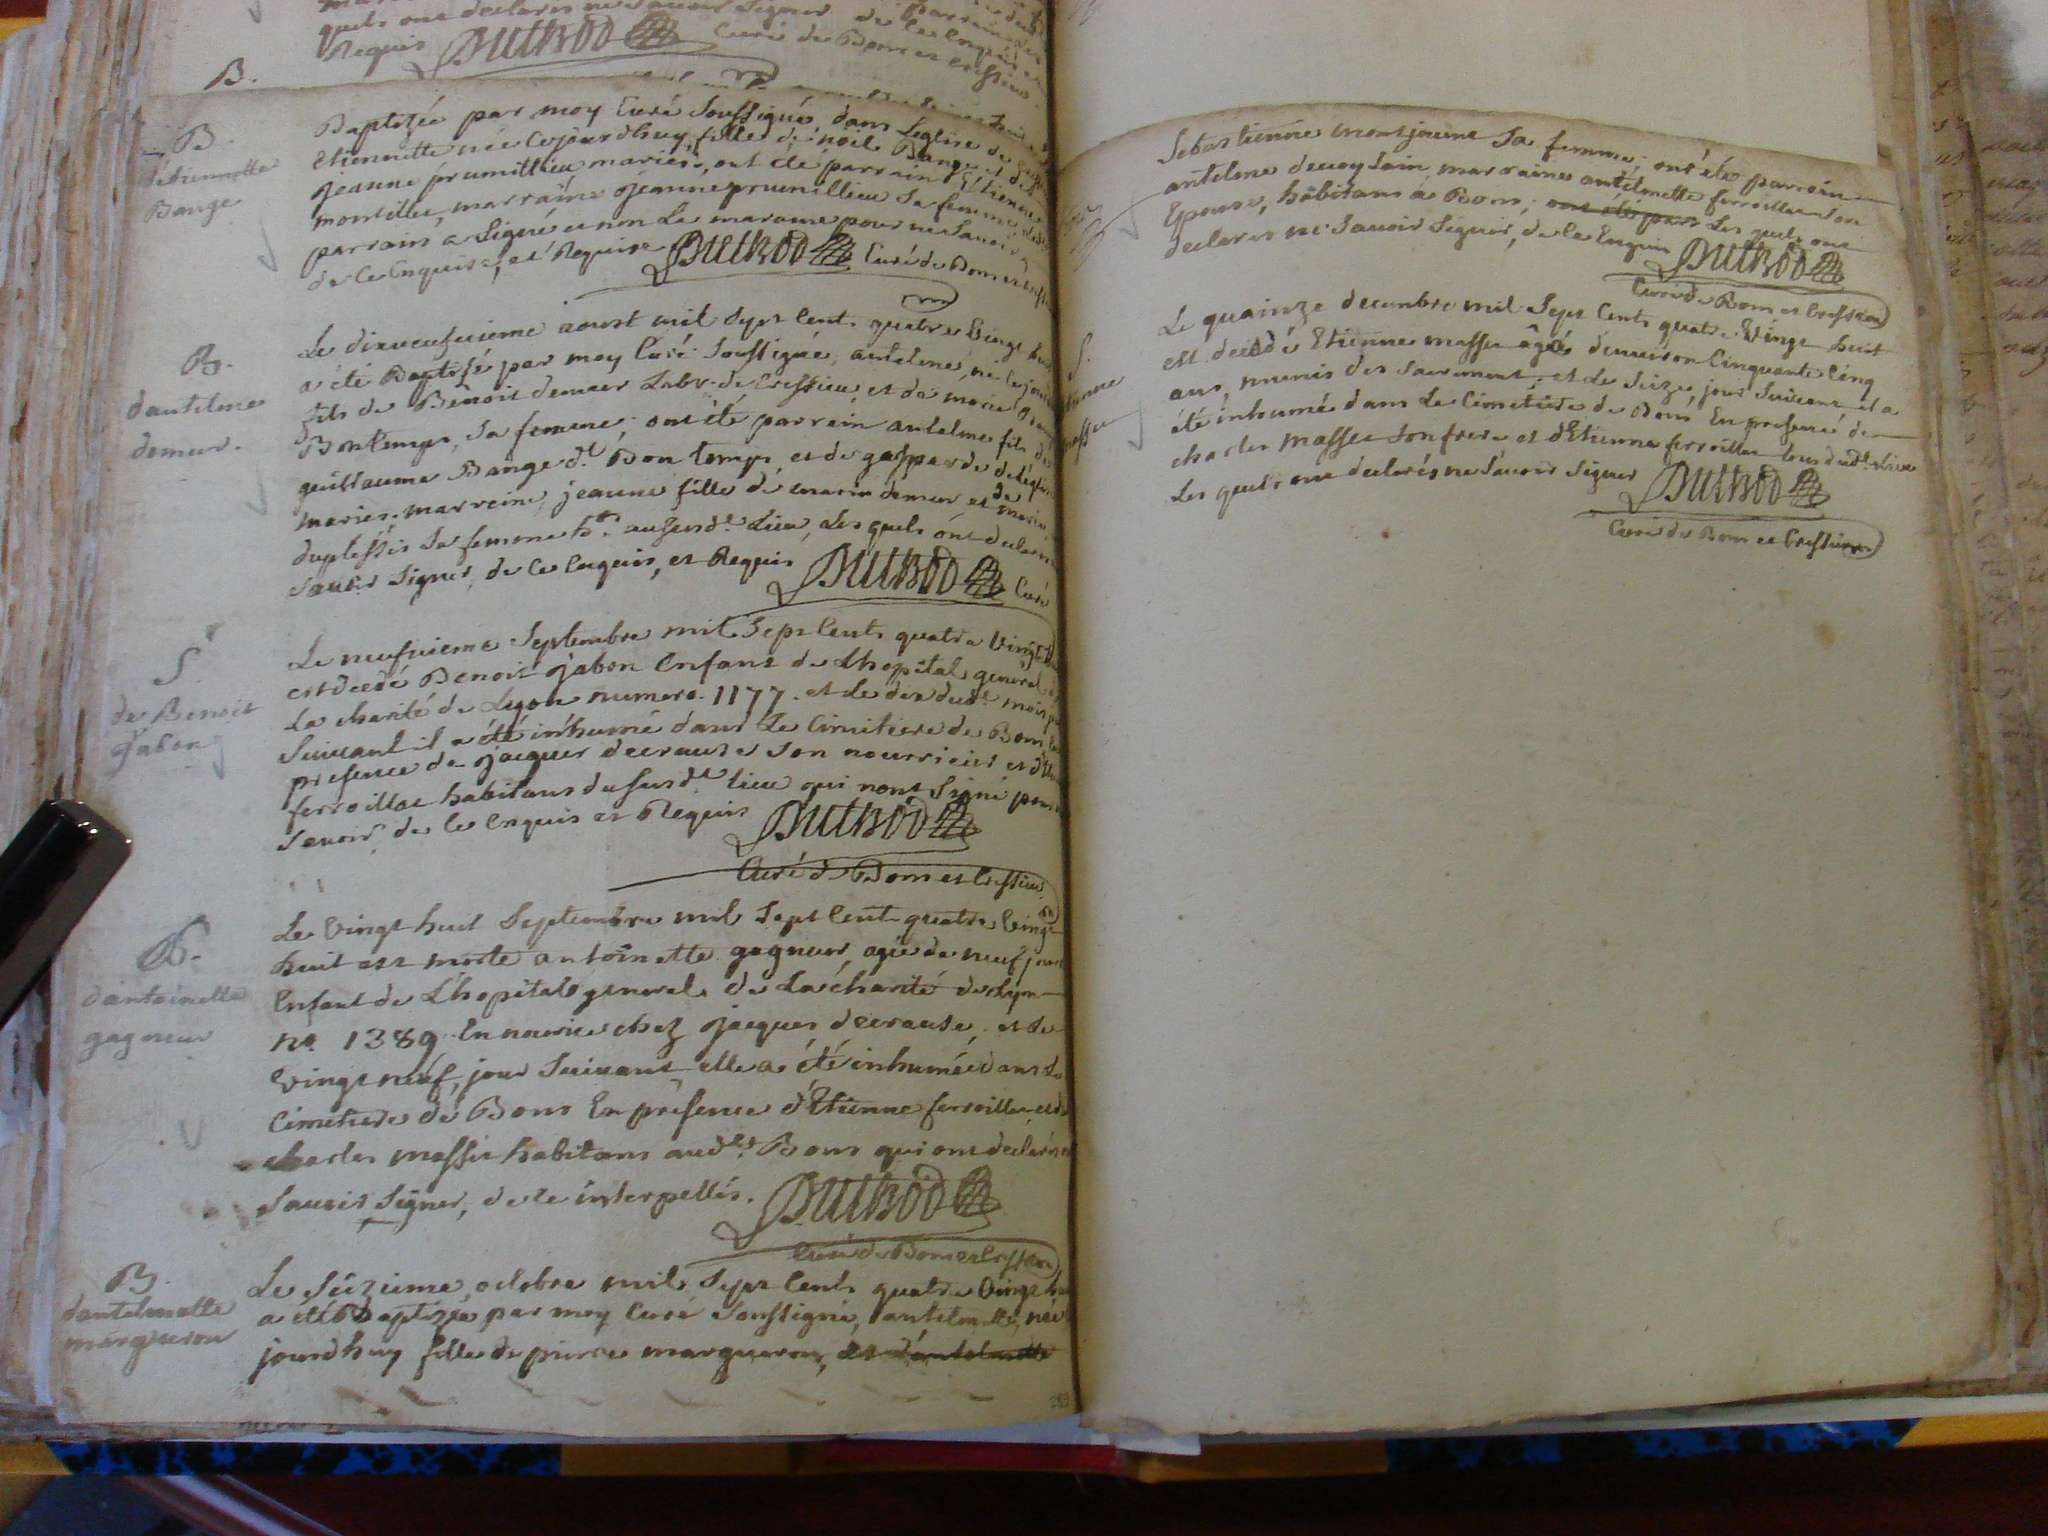 quels ont declarés ne Savoir Signer de ce Enquis et
Requis DUTROD Curé de Bons et Cressieu
B.
B.
d'étiennette
Bange
Baptizée par moy Curé Soussigné, dans Leglise de
Etiennette née Cejourdhuy, fille de noël Bange et de
jeanne prumillieu mariés, ont été parrain Etienne
montillet, marraine jeanne prumillieu Sa femme
parrain a Signé et non La maraine pour ne Savoir
de Ce Enquise, et Requise DUTROD Curé de Bons et Cressieu
B.
d'antelme
demeur.
Le dixneufvieme aoust mil Sept Cents quatre Vingt huit
a été Baptizé par moy Curé Soussigné, antelme, né Ce jour
fils de Benoit demeur Labr. de Cressieu, et de marie
Bontemps, Sa femme; ont été parrain antelme fils de
guillaume Bange dt. Bontemps, et de gasparde
mariés, marreine, jeanne fille de marin demeur et de marie
duplessis Sa femme hts. au Susdt. Lieu, Les quels ont declarés
Savoir Signer, de Ce Enquis, et Requis DUTROD Curé
S.
de Benoit
Jabon
Le neufvieme Septembre mil Sept Cents quatre Vingt
est decedé Benoit Jabon Enfant de Lhopital general
La charité de Lyon numero. 1177. et Le dix dudt. mois
Suivant il a été inhumé dans Le Cimitiere de Bons En
presence de Jacques decrause Son nourricier et d'Etienne
ferroillat habitans du Susdt. lieu qui nont Signé pour
Savoir, de Ce Enquis et Requis DUTROD
Curé de Bons et Cressieu
S.
d'antoinette
gagneur
Le Vingt huit Septembre mil Sept Cent quatre Vingt
huit est morte antoinette gagneur, agée de neuf jours
Enfant de L'hopital general de La charité de Lyon
no. 1389 En nourice chez Jacques decrause, et Le
Vingt neuf, jour Suivant elle a été inhumée dans Le
Cimetiere de Bons En présence d'Etienne ferroillat et de
charles massit habitans audt. Bons qui ont declarés ne
Savoir Signer, de Ce interpellés. DUTROD
Curé de Bons et Cressieu
B.
d'antelmette
margueron
Le Seizieme octobre mil Sept Cents quatre Vingt huit
a été Baptizée par moy Curé Soussigné, antelmette, née
jourdhuy fille de pierre margueron, et d'antelmette
Sebastienne montjeune Sa femme; ont été parrain
antelme decroy Sain, marraine antelmette ferroillat Son
Epouse, habitans à Bons; ont été par Les quels ont
declarés ne Savoir Signer, de Ce Enquis DUTROD
Curé de Bons et Cressieu
S.
Etienne
massit
Le quainze decembre mil Sept Cents quatre Vingt huit
est decedé Etienne massit âgée d'environ Cinquante Cinq
ans, munis des Sacrements, et Le Seize, jour Suivant il a
été inhumé dans Le Cimetiere de Bons En presence de
charles massit Son frere et d'Etienne ferroillat tous dudt. Lieu
Les quels ont declarés ne Savoir Signer DUTROD
Curé de Bons et Cressieu